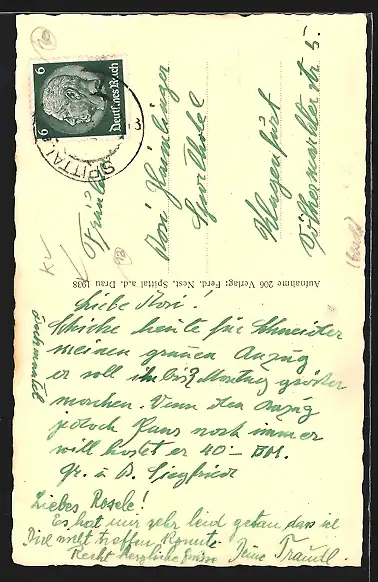 Liebe Rosi!
Schicke heute für Schneider
meinen grauen Anzug
er soll ihn bis Montag größer
machen. Wenn den Anzug
jedoch Hans noch immer
will kostet er 40.- RM.
Gr. u. B. Siegfried
Liebes Rosele!
Es hat mir sehr leid getan dass ich
Dich nicht treffen konnte.
Recht herzliche Grüsse Deine Traudl.
Aufnahme 206 Verlag: Ferd. Nest, Spittal a.d. Drau 1938
Fräulein
Rosi
Sporthotel
Klagenfurt
Völkermarkter str 5.
6
6
Deutsches Reich
SPITTAL